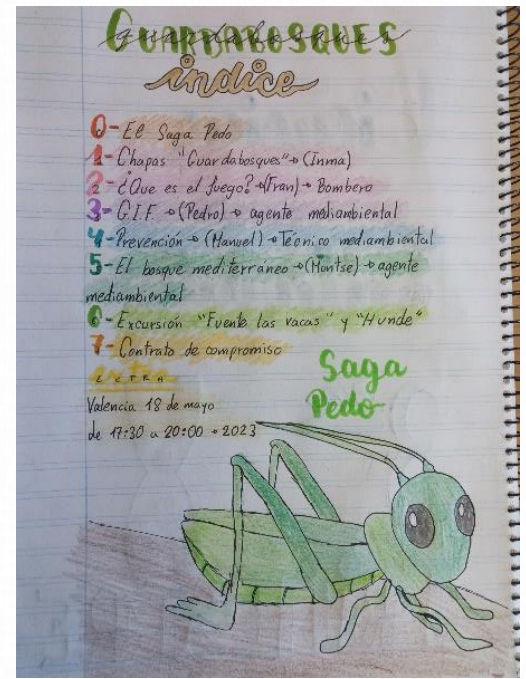 GUARDABOSQUES
guardabosques
índice
0-El Saga Pedo
1-Chapas "Guardabosques"→(Inma)
2-¿Que es el fuego?→(Fran)→Bombero
3-G.I.F.→(Pedro)→agente mediambiental
4-Prevención→(Manuel)→Téonico mediambiental
5-El bosque mediterráneo→(Montse)→agente
mediambiental
6-Excursión "Fuente las vacas" y "Hunde"
7-Contrato de compromiso
extra
EXTRA
Valencia 18 de mayo
de 17:30 a 20:00 • 2023
Saga
Pedo